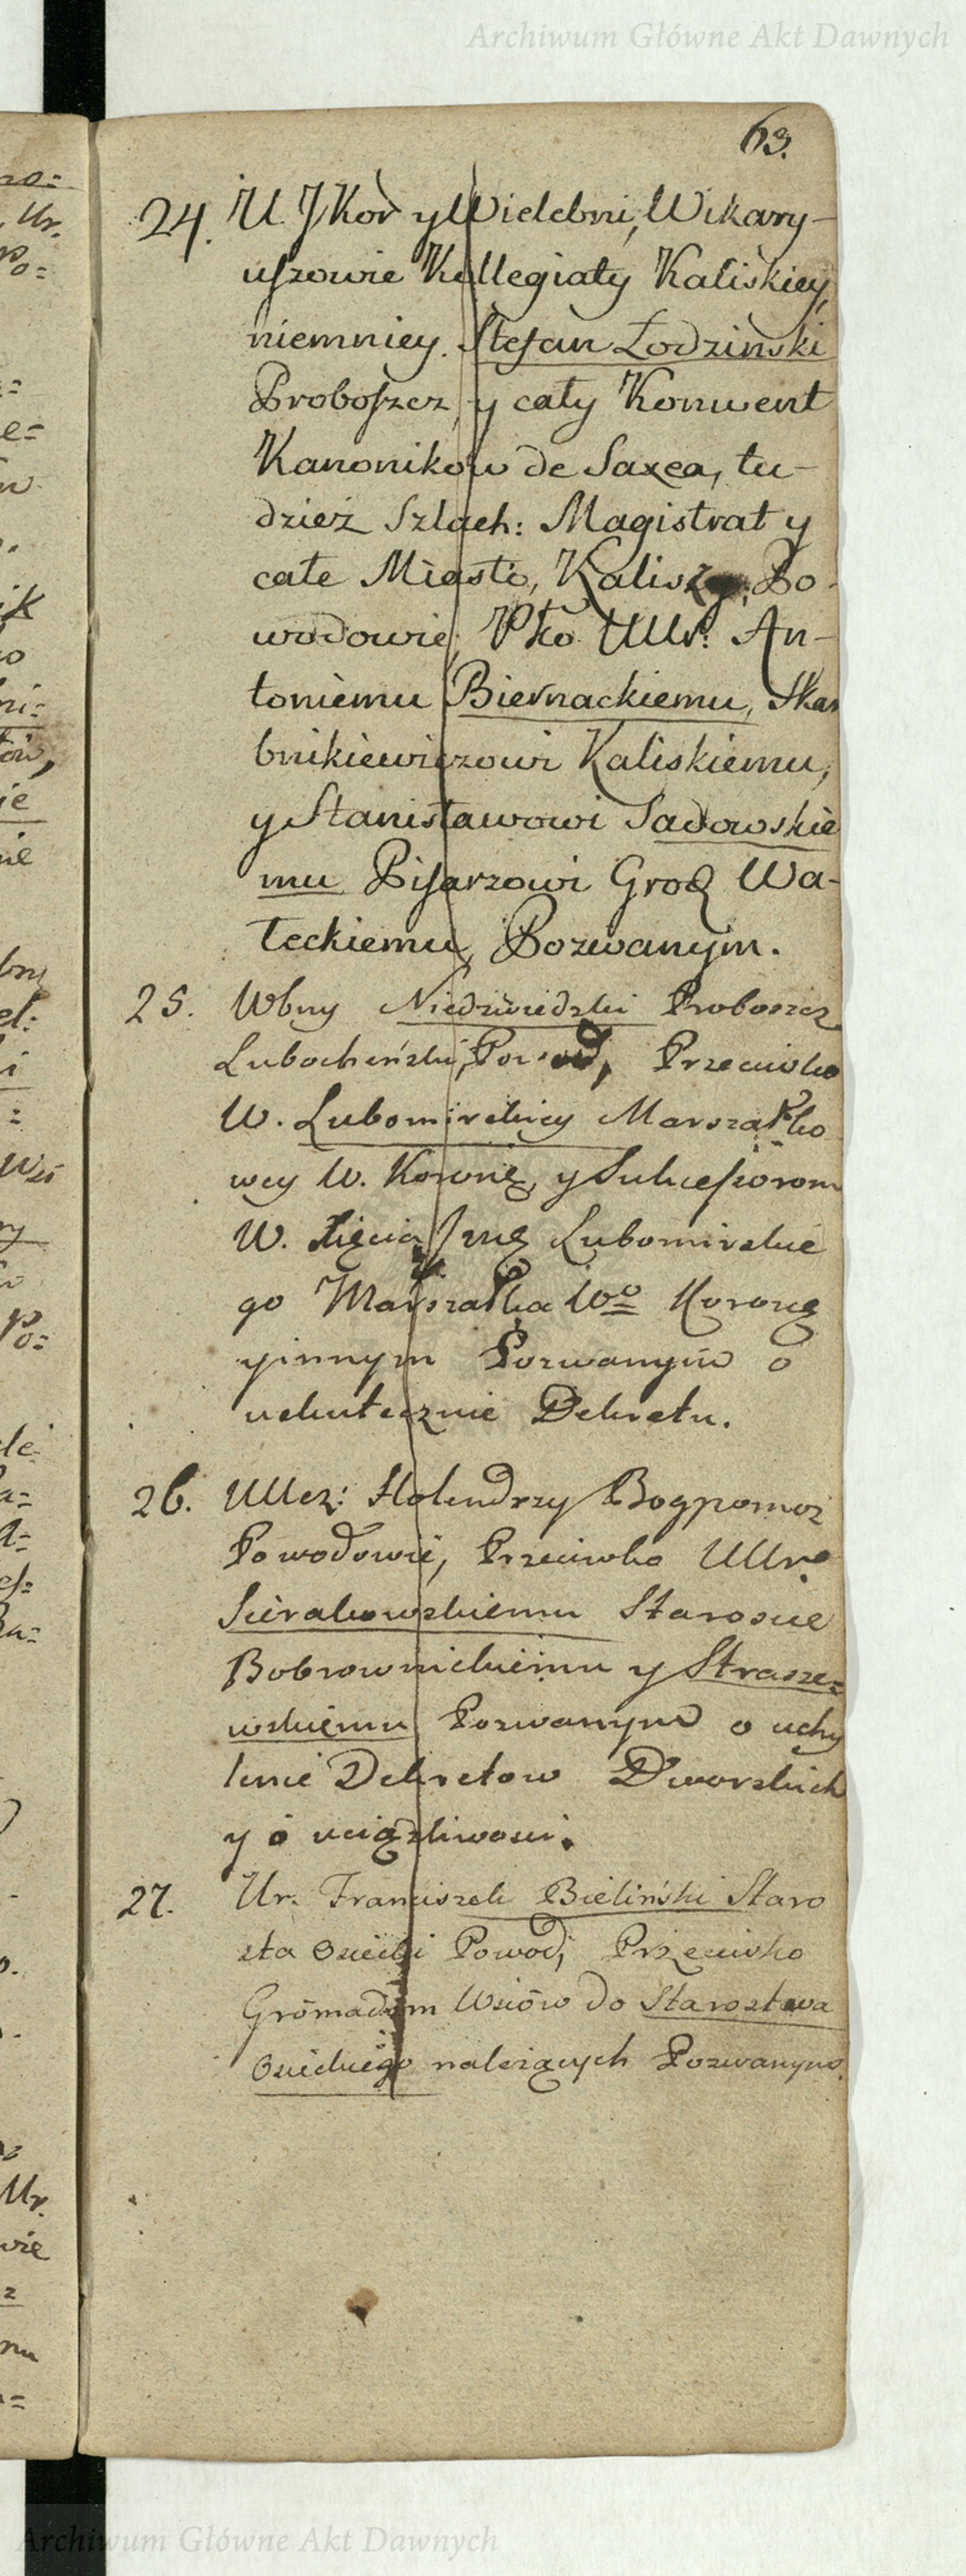 Archiwum Główne Akt Dawnych
63.
24. U JKor y Wielebni, Wikary-
uszowie Kollegiaty Kaliskiey,
niemniey. Stefan Łodzinski
Proboszcz, y cały Konwent
Kanonikow de Saxea, tu-
dzież Szlach: Magistrat y
całe Miasto, Kalisz, Po-
wodowie, Pko UUr: An-
toniemu Biernackiemu, Skar
bnikiewiczowi Kaliskiemu,
y Stanisławowi Sadowskie
mu Pisarzowi Grod Wa-
łeckiemu, Pozwanym.
25. Wbny Niedzwiedzki Proboszcz
Lubocheński, Powod, Przeciwko
W. Lubomirskiey Marszałko
wey W. Koronę, y Sukcessorom
W. Xięcia Jmę Lubomirskie
go Marszałka Wo Koronę
y innym Pozwanym o
uskutecznie Dekretu.
26. UUcz: Holendrzy Bogpomoz
Powodowie, Przeciwko UUr.
Sierakowskiemu Staroscie
Bobrownickiemu y Strasze=
wskiemu Pozwanym o uchy
lenie Dekretow Dworskich
y o uciązliwosci.
27. Ur. Franciszek Bieliński Staro
sta Osiecki Powod, Przeciwko
Gromadom Wsiów do Starostwa
Osieckiego należących Pozwanym.
Archiwum Główne Akt Dawnych